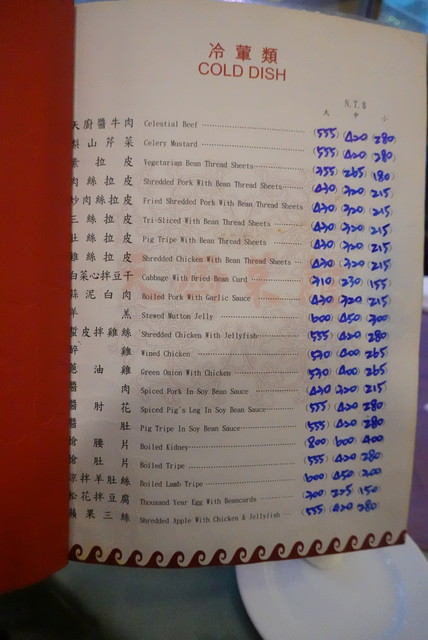 冷葷類
COLD DISH
N.T.$
大 中 小
天廚醬牛肉 Celestial Beef (555) (420) (280)
梨山芹菜 Celery Mustard (555) (420) (280)
素拉皮 Vegetarian Bean Thread Sheets (355) (265) (180)
肉絲拉皮 Shredded Pork With Bean Thread Sheets (430) (320) (215)
炒肉絲拉皮 Fried Shredded Pork With Bean Thread Sheets (430) (320) (215)
三絲拉皮 Tri-Sliced With Bean Thread Sheets (430) (320) (215)
肚絲拉皮 Pig Tripe With Bean Thread Sheets (430) (320) (215)
雞絲拉皮 Shredded Chicken With Bean Thread Sheets (430) (320) (215)
白菜心拌豆干 Cabbage With Dried Bean Curd (310) (230) (155)
蒜泥白肉 Boiled Pork With Garlic Sauce (430) (320) (215)
羊羔 Stewed Mutton Jelly (600) (450) (300)
蜇皮拌雞絲 Shredded Chicken With Jellyfish (555) (420) (280)
醉雞 Wined Chicken (530) (400) (265)
蔥油雞 Green Onion With Chicken (530) (400) (265)
醬肉 Spiced Pork In Soy Bean Sauce (430) (320) (215)
醬肘花 Spiced Pig's Leg In Soy Bean Sauce (555) (420) (280)
醬肚 Pig Tripe In Soy Bean Sauce (555) (420) (280)
熗腰片 Boiled Kidney (800) (600) (400)
熗肚片 Boiled Tripe (555) (420) (280)
涼拌羊肚絲 Boiled Lamb Tripe (600) (450) (300)
松花拌豆腐 Thousand Year Egg With Beancurds (300) (225) (150)
蘋果三絲 Shredded Apple With Chicken & Jellyfish (555) (420) (280)